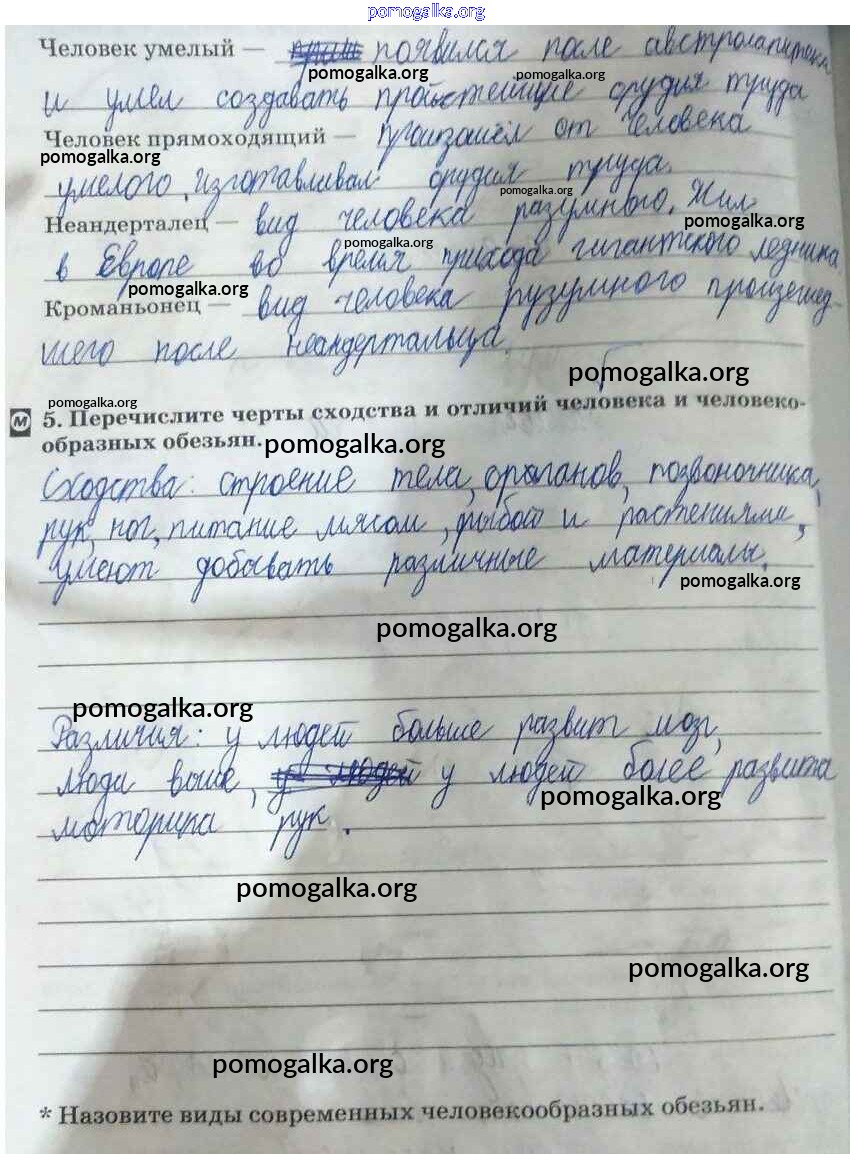 pomogalka.org
Человек умелый — появился после австролапитека
pomogalka.org pomogalka.org
и умел создавать простейшие орудия труда
Человек прямоходящий — произошёл от человека
pomogalka.org
умелого, изготавливал орудия труда.
pomogalka.org
Неандерталец — вид человека разумного. Жил
pomogalka.org
pomogalka.org
в Европе во время прихода гигантского ледника.
pomogalka.org
Кроманьонец — вид человека рузумного произошед-
шего после неандертальца.
pomogalka.org
pomogalka.org
М 5. Перечислите черты сходства и отличий человека и человеко-
образных обезьян.
pomogalka.org
Сходства: строение тела, органов, позвоночника,
рук, ног, питание мясом, рыбой и растениями,
умеют добывать различные материалы.
pomogalka.org
pomogalka.org
pomogalka.org
Различия: у людей больше развит мозг,
люди выше, у людей более развита
pomogalka.org
моторика рук.
pomogalka.org
pomogalka.org
pomogalka.org
* Назовите виды современных человекообразных обезьян.